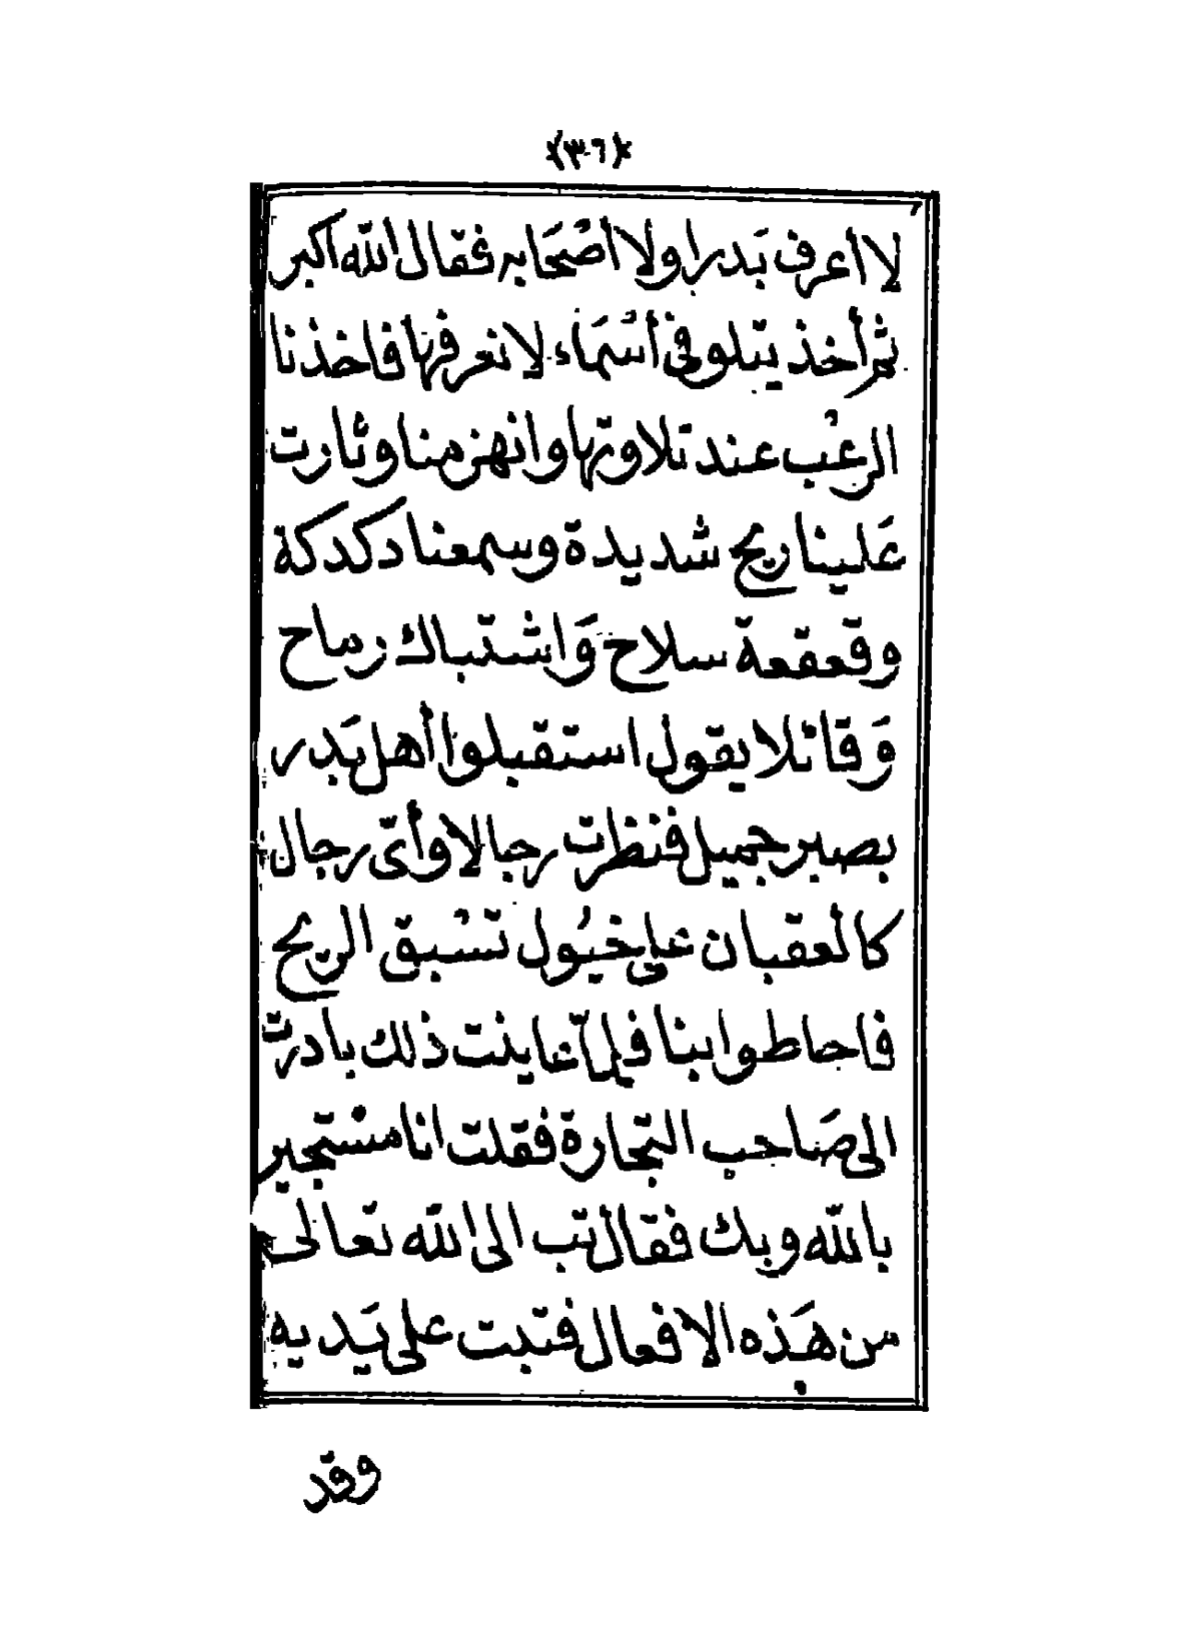 (٣٦)
لا أعرف بَدرا ولا أصْحَابه فقال الله أكبر
ثم أخذ يتلو فى أسْمَاء لا نعرفها فاخذنا
الرعْب عند تلاوتها وانهزمنا وثارت
عَلينا ريح شديدة وسمعنا دكدكة
وقعقعة سلاح وَاشتباك رماح
وَقائلا يقول استقبلوا أهل بَدر
بصبر جميل فنظرت رجالا وأىّ رجال
كالعقبان على خيُول تسْبق الريح
فاحاطوا بنا فلمّا عاينت ذلك بادرت
الى صَاحب التجارة فقلت انا مسْتجير
بالله وبك فقال تب الى الله تعالى
من هَذه الافعال فتبت على يَديه
وقد